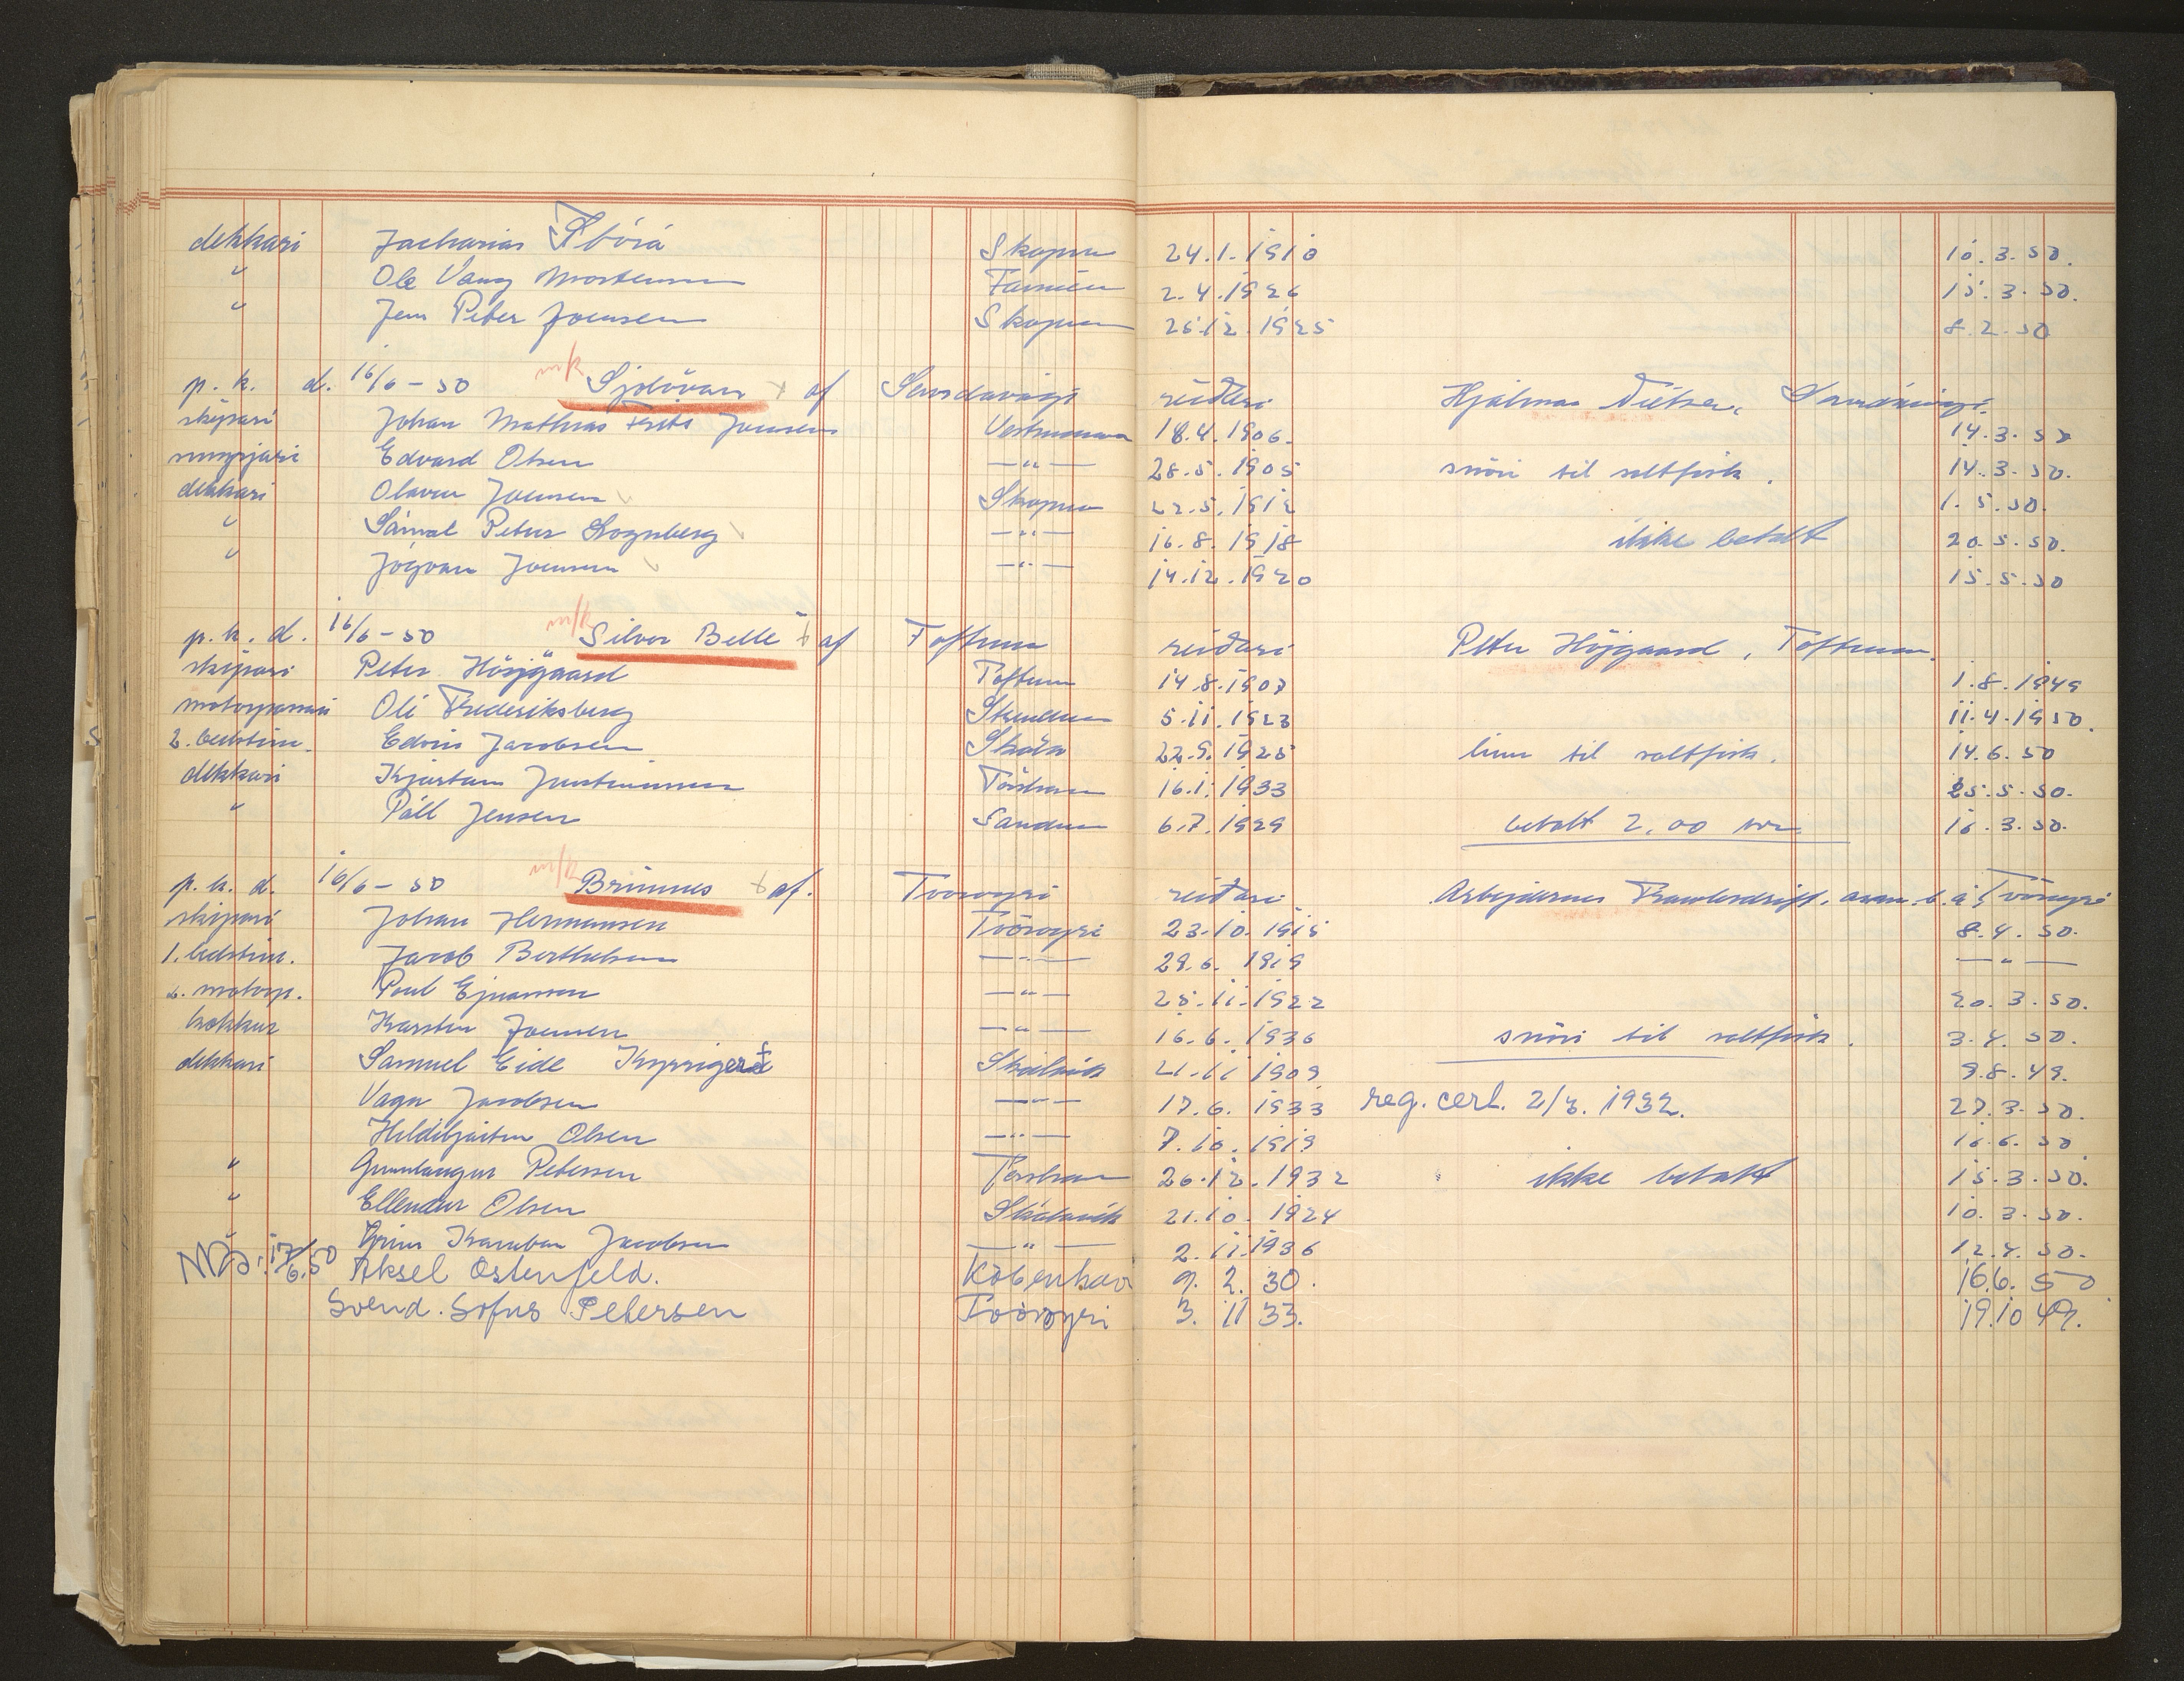 dekkari Zacharias Skorá Skopun 24.1.1910 10.3.50.
" Ole Vang Mortensen Famien 2.4.1926 15.3.50.
" Jens Peter Joensen Skopun 25.12.1925 8.2.50
p. k. d. 16/6-50 m/k Sjolövan + af Sandavági reiðari Hjalmar Sandavági.
skipari Johan Mathias Frits Joensen Vestmanna 18.4.1906. 14.3.50
Edvard Olsen —"— 28.5.1905 snöri til saltfisk. 14.3.50.
dekkari Olavur Joensen Skopun 22.5.1912 1.5.50.
" Sámal Petur Sognberg —"— 16.8.1918 ikke betalt 20.5.50.
" Jógvan Joensen —"— 14.12.1920 15.5.50
p. k. d. 16/6-50 m/k Silver Belle + af Toftum reiðari Peter Höjgaard, Toftum.
skipari Peter Höjgaard Toftum 14.8.1907 1.8.1949
motorpassari Oli Frederiksberg 5.11.1923 11.4.1950.
2. bedstim. Edvin Jacobsen Skála 22.9.1925 linu til saltfisk. 14.6.50
dekkari Kjartan Justinussen Tórshavn 16.1.1933 25.5.50.
" Páll Jensen Sandur 6.7.1929 betalt 2,00 kr. 16.3.50.
p. k. d. 16/6-50 m/k Brimnes + af. Tvöroyri reiðari Arbejdernes Trawlerdrift, á Tvöroyri
skipari Johan Hermansen Tvöroyri 23.10.1915 8.4.50.
1. bedstim. Jacob Berthelsen —"— 29.6.1919 —"—
2. motorp. Poul Ejnarson —"— 25.11.1922 20.3.50.
kokkur Karsten Joensen —"— 16.6.1936 snöri til saltfisk. 3.4.50.
dekkari Samuel Eide Kyrrigerð Skálavík 21.11.1909 9.8.49.
Vagn Jacobsen —"— 17.6.1933 reg. cert. 2/3. 1932. 27.3.50.
Hildibjartur Olsen —"— 7.10.1919 16.6.50
" Gunnlaugur Petersen Tórshavn 26.12.1932 ikke betalt 15.3.50.
" Ellendur Olsen Skálavík 21.10.1924 10.3.50.
Grímur Jacobsen —"— 2.11.1936 12.4.50.
17/6.50 Aksel Ostenfeld. Köbenhavn 9. 2. 30. 16.6. 50
Svend. Sofus Petersen Tvöroyri 3. 11 33. 19.10 49.